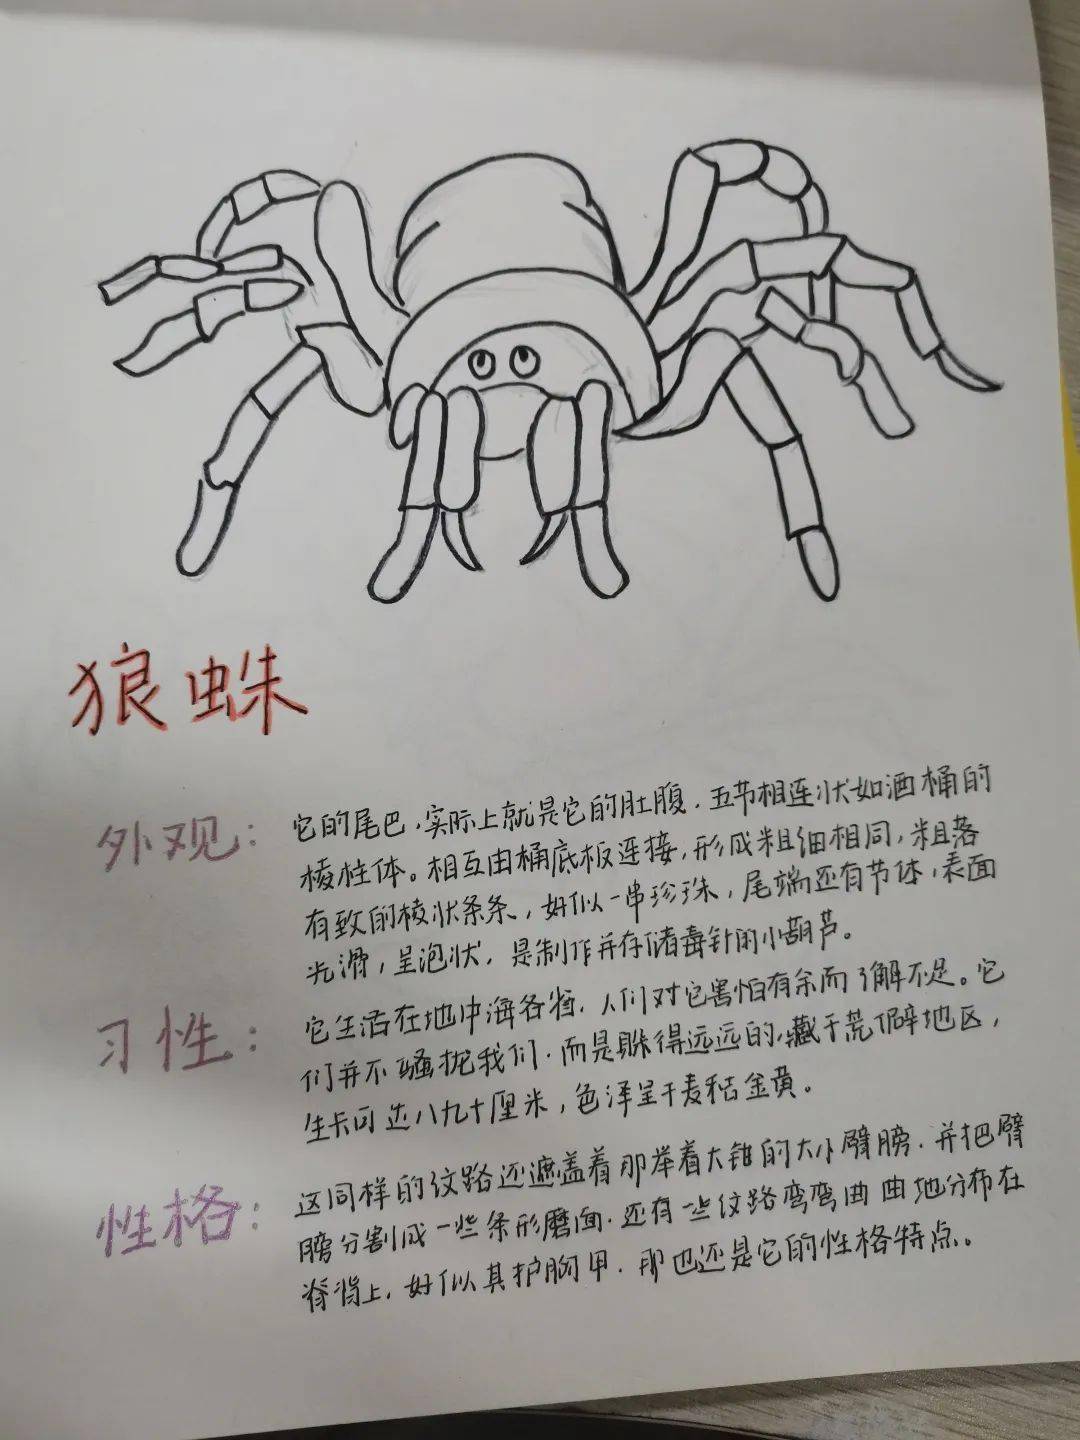 狼蛛
外观：
它的尾巴，实际上就是它的肚腹．五节相连状如酒桶的
棱柱体。相互由桶底板连接，形成粗细相同，粗落
有致的棱状条条，好似一串珍珠，尾端还有节体，表面
光滑，呈泡状，是制作并存储毒针的小葫芦。
习性：
它生活在地中海各省．人们对它害怕有余而了解不足。它
们并不骚扰我们．而是躲得远远的，藏于荒僻地区，
生长可达八九十厘米，色泽呈干麦秸金黄。
性格：
这同样的纹路还遮盖着那举着大钳的大小臂膀．并把臂
膀分割成一些条形磨面．还有一些纹路弯弯曲曲地分布在
脊背上，好似其护胸甲．那也还是它的性格特点。